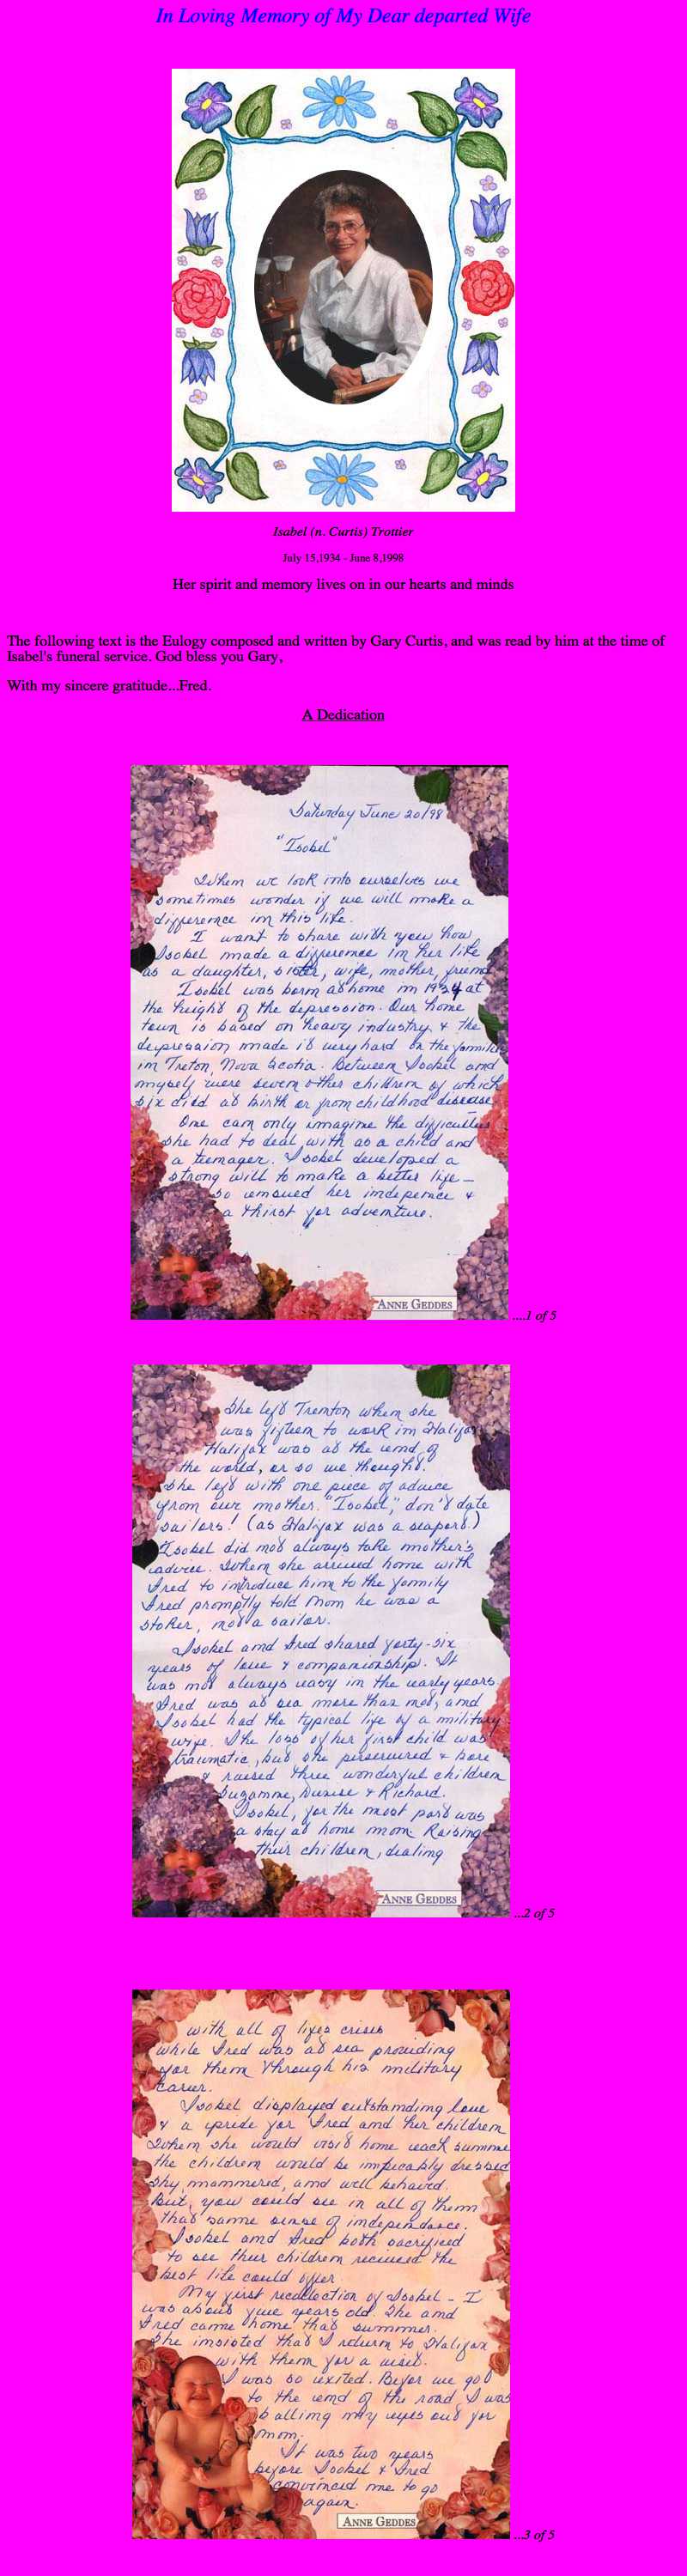 In Loving Memory of My Dear departed Wife
Isabel (n. Curtis) Trottier
July 15,1934 - June 8,1998
Her spirit and memory lives on in our hearts and minds
The following text is the Eulogy composed and written by Gary Curtis, and was read by him at the time of
Isabel's funeral service. God bless you Gary,
With my sincere gratitude...Fred.
A Dedication
Saturday June 20/98
"Isobel"
When we look into ourselves we
sometimes wonder if we will make a
difference in this life.
I want to share with you how
Isobel made a difference in her life
as a daughter, sister, wife, mother, friend
Isobel was born at home in 1934 at
the height of the depression. Our home
town is based on heavy industry & the
depression made it very hard on the families
in Trenton, Nova Scotia. Between Isobel and
myself were seven other children of which
six died at birth or from childhood disease.
One can only imagine the difficulties
she had to deal with as a child and
a teenager. Isobel developed a
strong will to make a better life -
so ensued her &
a thirst for adventure.
ANNE GEDDES
....1 of 5
She left Trenton when she
was fifteen to work in Halifax
Halifax was at the end of
the world, or so we thought.
She left with one piece of advice
from our mother. "Isobel", don't date
sailors! (as Halifax was a seaport.)
Isobel did not always take mother's
advice. When she arrived home with
Fred to introduce him to the family
Fred promptly told Mom he was a
stoker, not a sailor.
Isobel and Fred shared forty-six
years of love & companionship. It
was not always easy in the early years.
Fred was at sea more than not, and
Isobel had the typical life of a military
wife. The loss of her first child was
traumatic, but she & bore
& raised three wonderful children
Suzanne, Denise & Richard.
Isobel, for the most part was
a stay at home mom. Raising
their children, dealing
ANNE GEDDES
...2 of 5
with all of lifes crises
while Fred was at sea providing
for them through his military
career.
Isobel displayed outstanding love
& a pride for Fred and her children
When she would visit home each summer
the children would be impecably dressed
shy, mannered, and well behaved.
But, you could see in all of them
that same sense of independance.
Isobel and Fred both sacrificed
to see their children received the
best life could offer.
My first recollection of Isobel - I
was about five years old. She and
Fred came home that summer.
She insisted that I return to Halifax
with them for a visit.
I was so exited. Befor we got
to the end of the road I was
balling my eyes out for
mom.
It was two years
before Isobel & Fred
convinced me to go
again.
ANNE GEDDES
...3 of 5